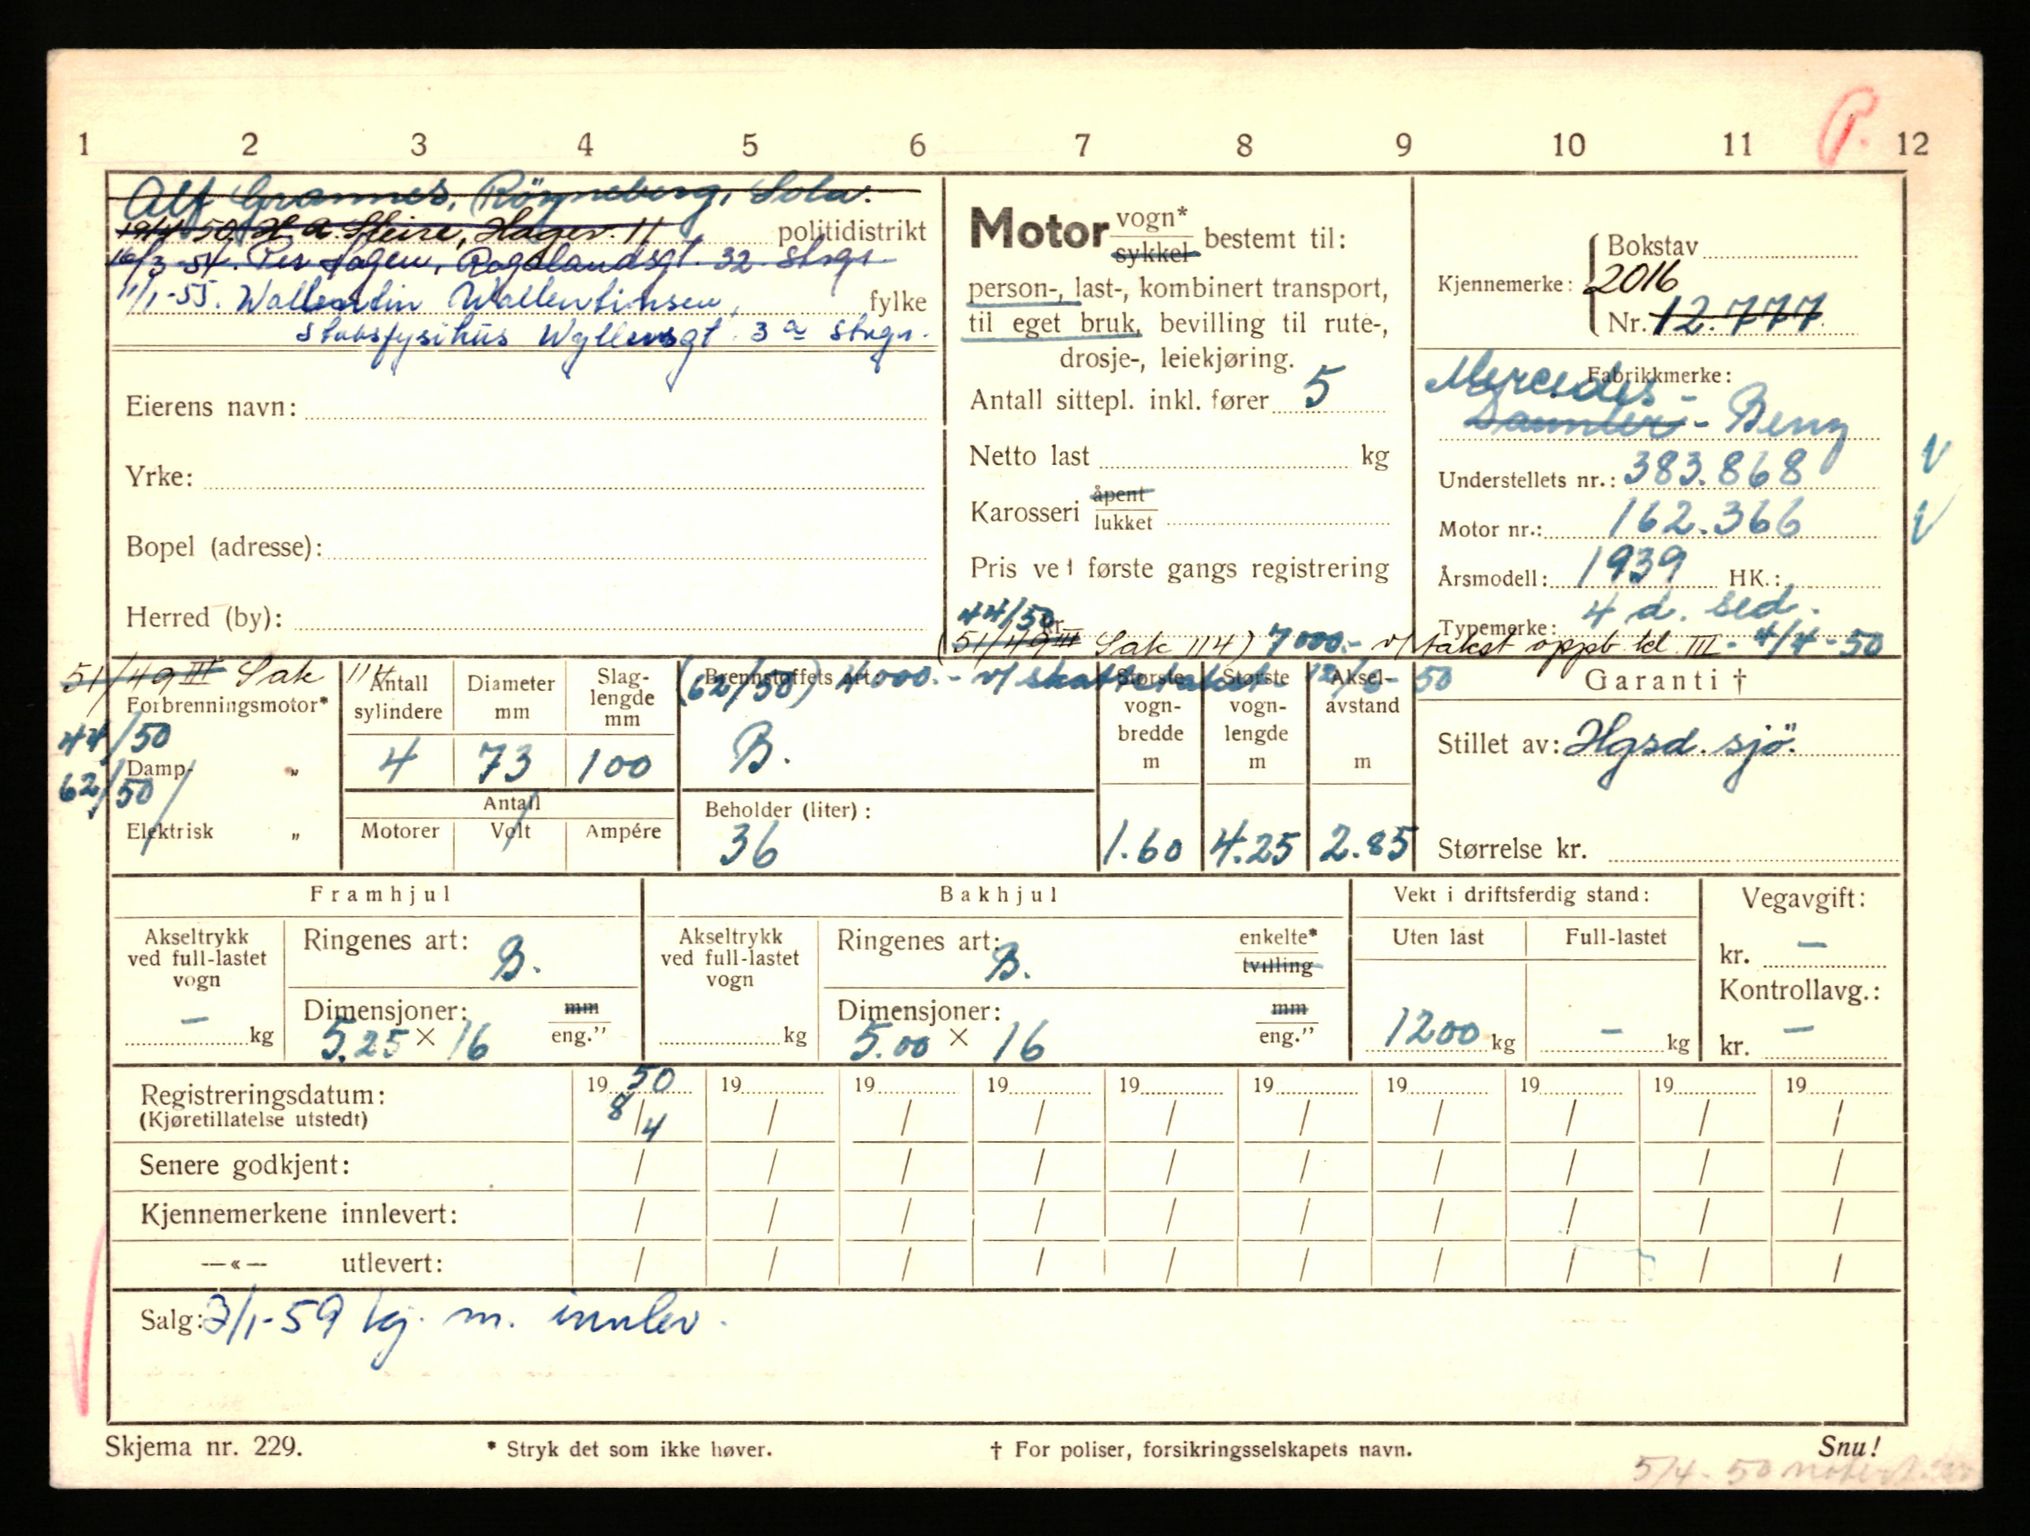 P.
1 2 3 4 5 6 7 8 9 10 11 12
Alf Grannes, Sola.
politidistrikt
16/3-54. Per Rogalandsgt. 32 Stvgr.
1/1-55. Wallentin Wallentinsen, fylke
Stabsfysikus Wyllersgt. 3 a Stvgr.
Eierens navn:
Yrke:
Bopel (adresse):
Herred (by):
Motor vogn* sykkel bestemt til:
person-, last-, kombinert transport,
til eget bruk, bevilling til rute-,
drosje-, leiekjøring.
Antall sittepl. inkl. fører 5
Netto last kg
Karosseri åpent lukket
Pris ved første gangs registrering
44/50 kr.
(51/49 III Sak 114) 7000.- v/takst oppb. td. III - 4/4-50
Kjennemerke: Bokstav
2016
Nr. 12.777
Fabrikkmerke:
Mercedes-
Daimler - Benz
Understellets nr.: 383.868 V
Motor nr.: 162.366 V
Årsmodell: 1939 HK.:
4 d. sed.
Typemerke:
51/49 III Sak 114
(62/50) 4000.- v/ skattetakst 12/6 50
Forbrenningsmotor*
44/50
Damp- „
62/50
Elektrisk „
Antall sylindere
4
Diameter mm
73
Slaglengde mm
100
Antall
Motorer Volt Ampére
Brennstoffets art:
B.
Beholder (liter):
36
Største vogn-bredde m
1.60
Største vogn-lengde m
4.25
Aksel-avstand m
2.85
Garanti †
Stillet av: Hgsd. sjö.
Størrelse kr.
Framhjul
Bakhjul
Vekt i driftsferdig stand:
Vegavgift:
Akseltrykk ved full-lastet vogn
— kg
Ringenes art: B.
Dimensjoner: mm
5.25 × 16 eng.”
Akseltrykk ved full-lastet vogn
kg
Ringenes art: B. enkelte* tvilling
Dimensjoner: mm
5.00 × 16 eng.”
Uten last
1200 kg
Full-lastet
— kg
kr. —
Kontrollavg.:
kr. —
Registreringsdatum: 19 50 19 19 19 19 19 19 19 19 19
(Kjøretillatelse utstedt) 8/4 / / / / / / / / /
Senere godkjent: / / / / / / / / / /
Kjennemerkene innlevert: / / / / / / / / / /
—«— utlevert: / / / / / / / / / /
Salg: 3/1-59 kj. m. innlev.
Skjema nr. 229.
* Stryk det som ikke høver.
† For poliser, forsikringsselskapets navn.
Snu!
5/4-50